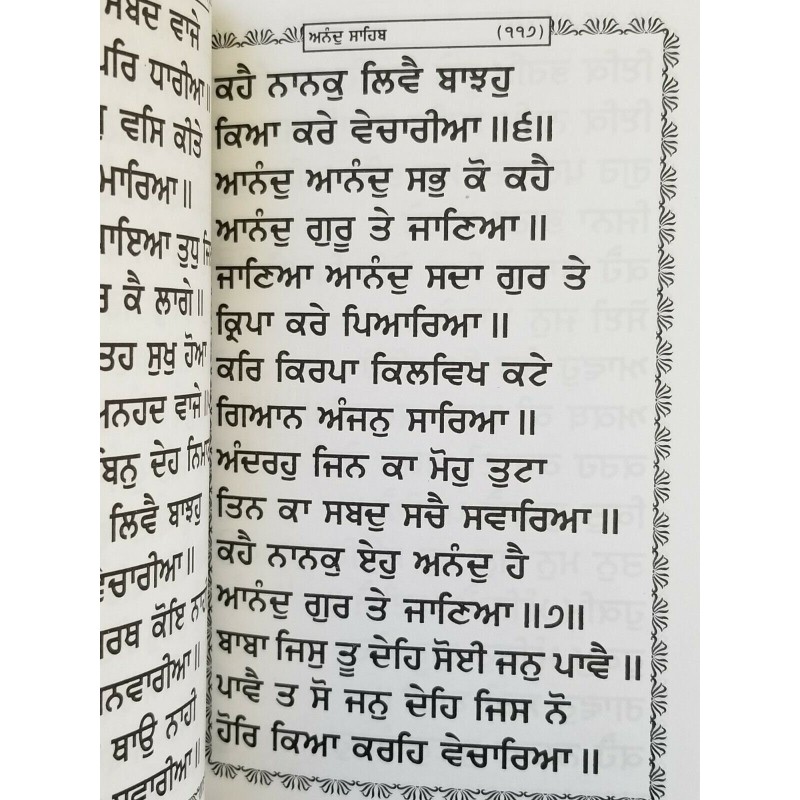 ਸਬਦ ਵਾਜੇ
ਧਾਰੀਆ॥
ਵਸਿ ਕੀਤੇ
ਮਾਰਿਆ॥
ਤੁਧੁ
ਕੈ ਲਾਗੇ॥
ਸੁਖੁ ਹੋਆ
ਅਨਹਦ ਵਾਜੇ
ਦੇਹ
ਲਿਵੈ ਬਾਝਹੁ
ਵੇਚਾਰੀਆ॥
ਕੋਇ
ਥਾਉ ਨਾਹੀ
ਅਨੰਦੁ ਸਾਹਿਬ (੧੧੭)
ਕਹੈ ਨਾਨਕੁ ਲਿਵੈ ਬਾਝਹੁ
ਕਿਆ ਕਰੇ ਵੇਚਾਰੀਆ॥੬॥
ਆਨੰਦੁ ਆਨੰਦੁ ਸਭੁ ਕੋ ਕਹੈ
ਆਨੰਦੁ ਗੁਰੂ ਤੇ ਜਾਣਿਆ॥
ਜਾਣਿਆ ਆਨੰਦੁ ਸਦਾ ਗੁਰ ਤੇ
ਕ੍ਰਿਪਾ ਕਰੇ ਪਿਆਰਿਆ॥
ਕਰਿ ਕਿਰਪਾ ਕਿਲਵਿਖ ਕਟੇ
ਗਿਆਨ ਅੰਜਨੁ ਸਾਰਿਆ॥
ਅੰਦਰਹੁ ਜਿਨ ਕਾ ਮੋਹੁ ਤੁਟਾ
ਤਿਨ ਕਾ ਸਬਦੁ ਸਚੈ ਸਵਾਰਿਆ॥
ਕਹੈ ਨਾਨਕੁ ਏਹੁ ਅਨੰਦੁ ਹੈ
ਆਨੰਦੁ ਗੁਰ ਤੇ ਜਾਣਿਆ॥੭॥
ਬਾਬਾ ਜਿਸੁ ਤੂ ਦੇਹਿ ਸੋਈ ਜਨੁ ਪਾਵੈ॥
ਪਾਵੈ ਤ ਸੋ ਜਨੁ ਦੇਹਿ ਜਿਸ ਨੋ
ਹੋਰਿ ਕਿਆ ਕਰਹਿ ਵੇਚਾਰਿਆ॥